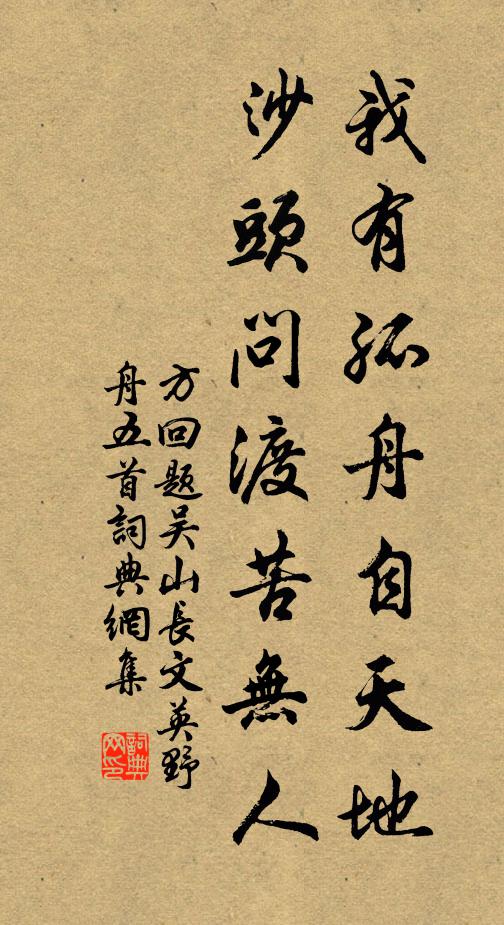 我有孤舟自天地
沙頭問渡苦無人
方回題吴山長文英野
舟五首詞典網集
詞典
网印